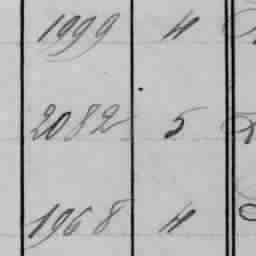 1999 4
2082 5
1968 4